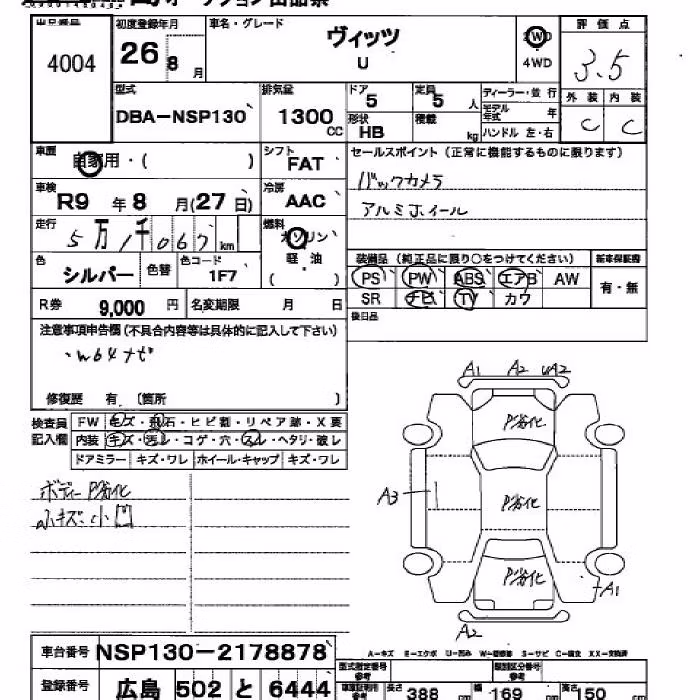 出品番号 初度登録年月 車名・グレード 評価点
4004 26 8月 ヴィッツ 2WD 3.5
U 4WD
型式 排気量 ドア 定員 ディーラー・並行 外装 内装
DBA-NSP130 1300cc 5 5人 モデル年式 年 C C
形状 HB 積載 kg ハンドル 左・右
車歴 自家用・( ) シフト FAT セールスポイント (正常に機能するものに限ります)
車検 R9年8月(27日) 冷房 AAC バックカメラ
アルミホイール
走行 5万1千067km 燃料 ガソリン
軽油
( )
色 シルバー 色替 色コード 1F7
装備品 (純正品に限り○をつけてください) 新車保証書
PS PW ABS エアB AW 有・無
SR ナビ TV カワ
R券 9,000円 名変期限 月 日 後日品
注意事項申告欄(不具合内容等は具体的に記入して下さい)
・W64ナビ
修復歴 有 〔箇所 〕
検査員記入欄 FW キズ・飛石・ヒビ割・リペア跡・X要
内装 キズ・汚レ・コゲ・穴・スレ・ヘタリ・破レ
ドアミラー キズ・ワレ ホイール・キャップ キズ・ワレ
ボディーP劣化
小キズ・小凹
A1 A2 UA2
P劣化
A3 P劣化
P劣化
A1
A2
A-キズ E-エクボ U-凹み W-補修跡 S-サビ C-腐食 XX-交換済
車台番号 NSP130-2178878
登録番号 広島 502 と 6444
型式指定番号参考 類別区分番号参考
長さ 388 cm 幅 169 cm 高さ 150 cm